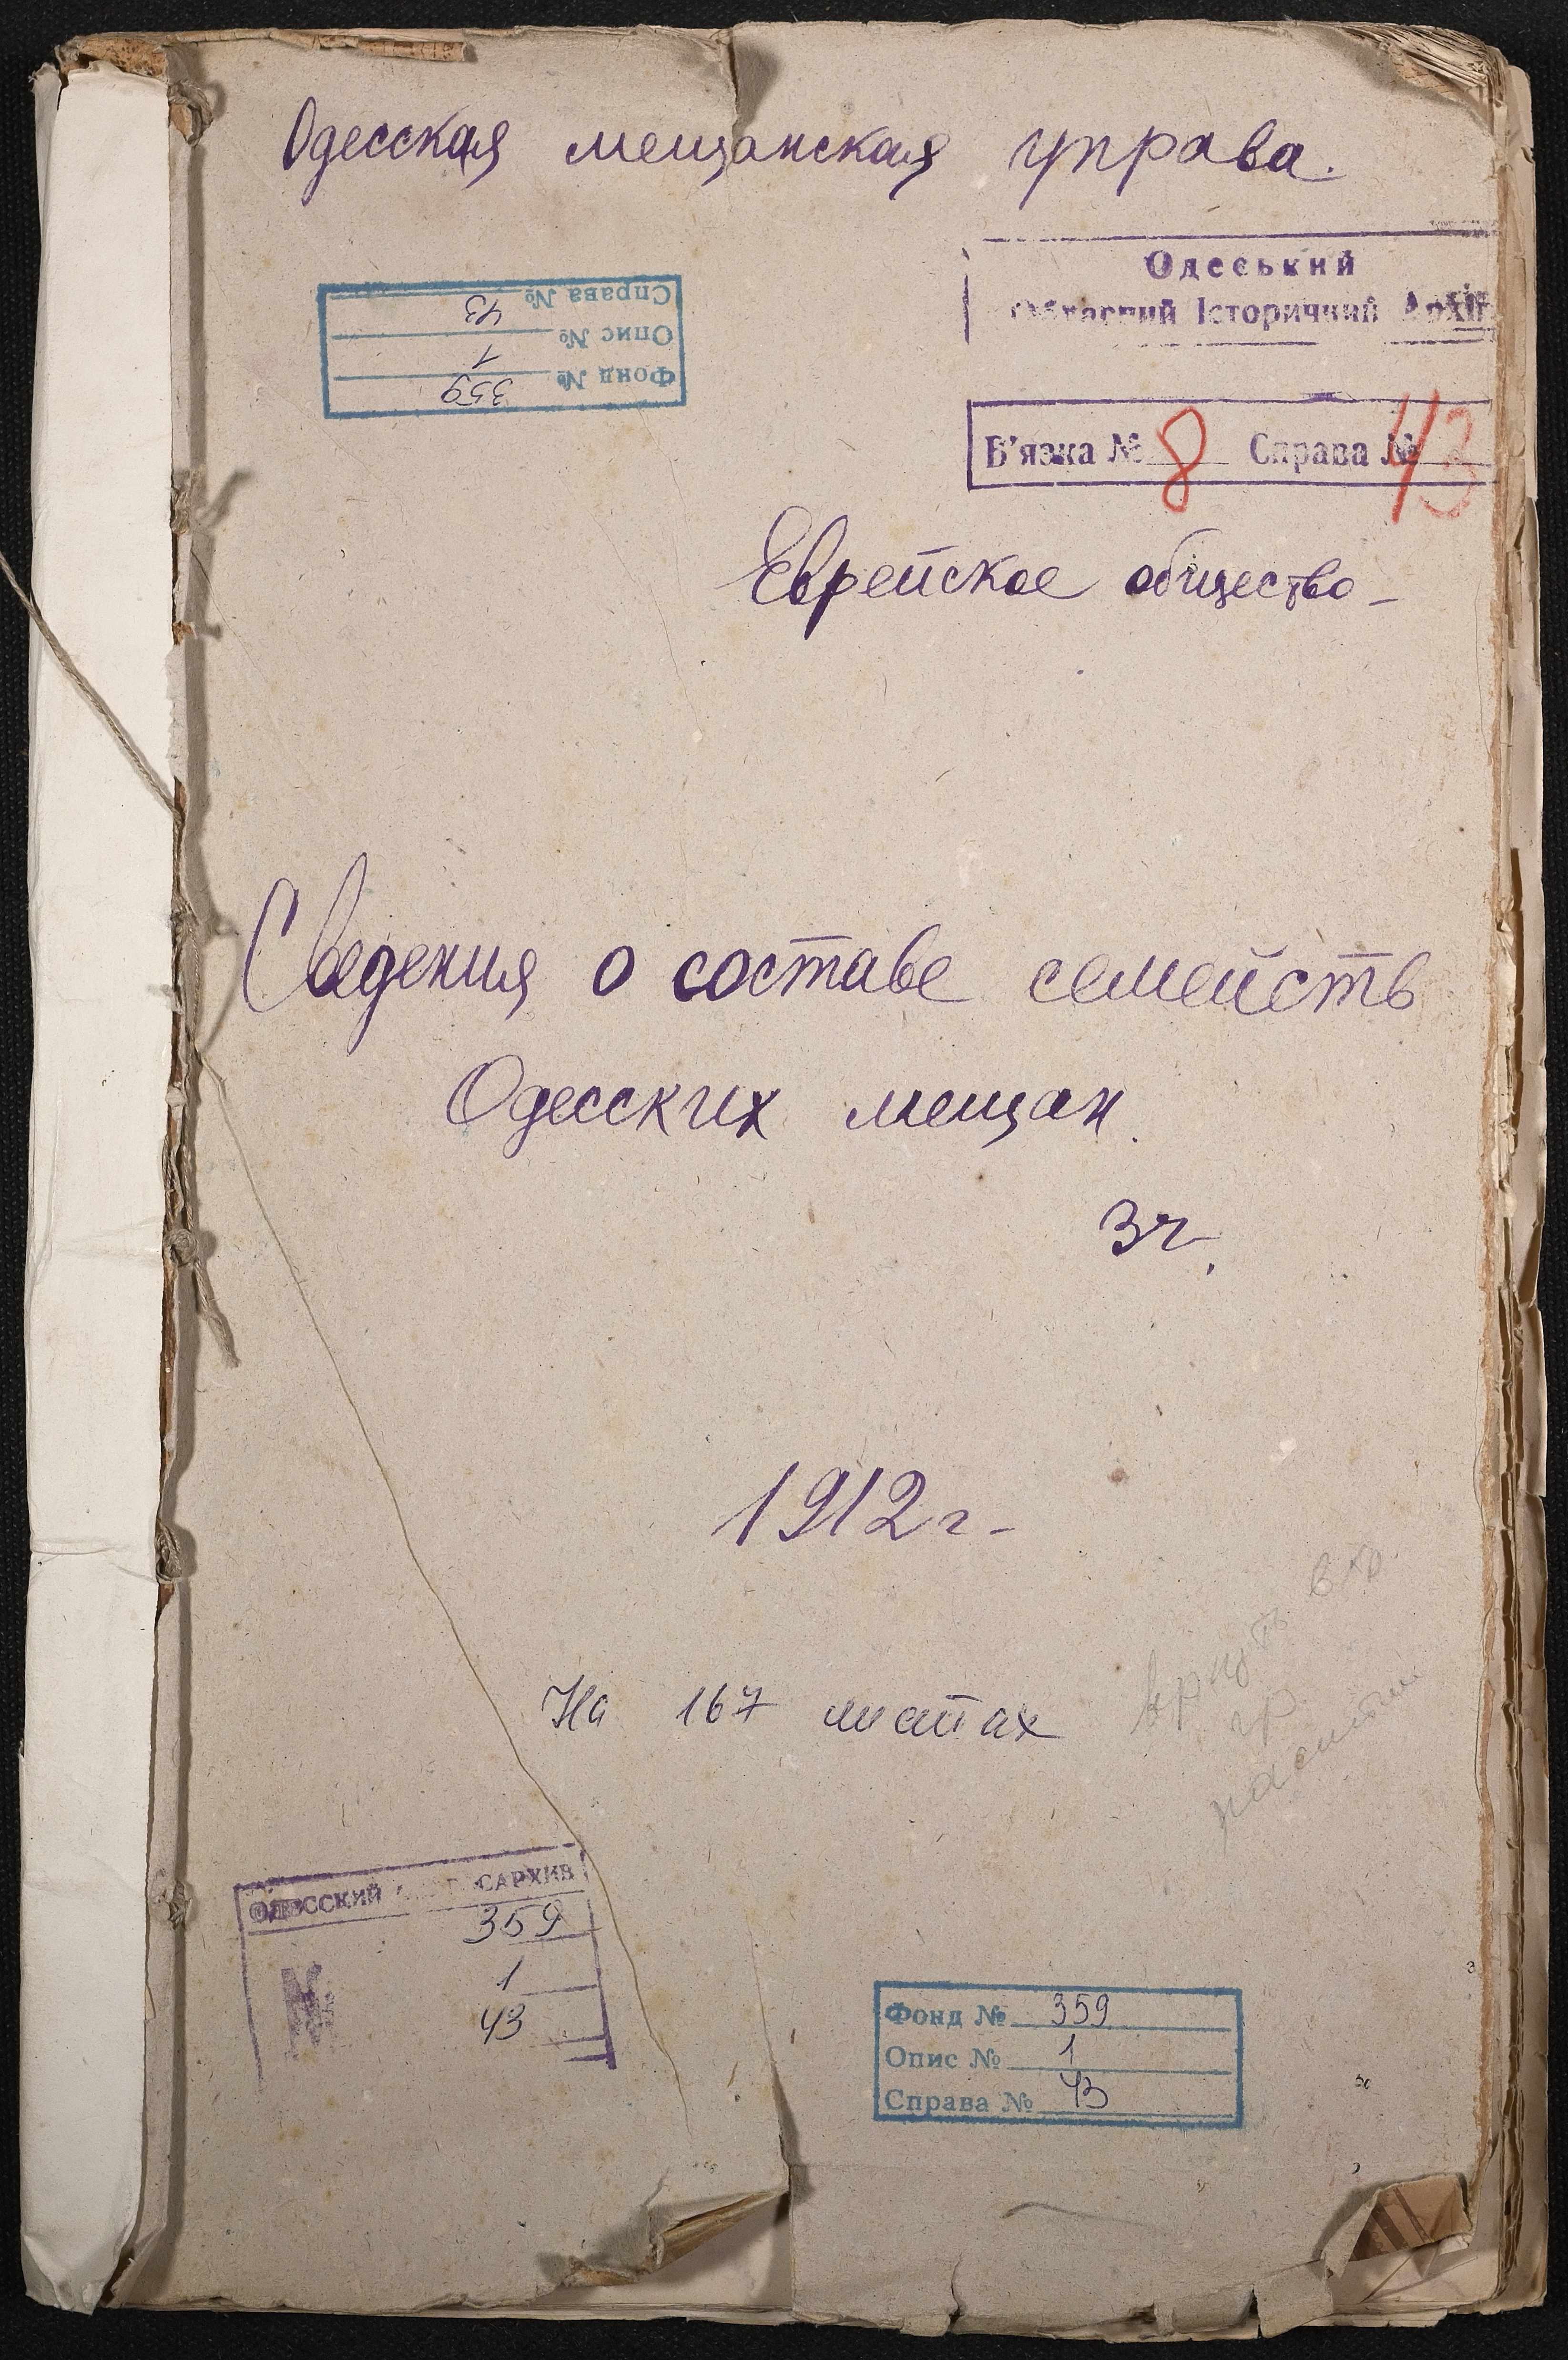 Одесская мещанская управа.
Одеський
Обласний Історичний Архів
Справа № 43
Опис № 1
Фонд № 359
В'язка № 8 Справа № 43
Еврейское общество-
Сведения о составе семейств
Одесских мещан.
3ч.
1912г-
На 167 листах
ОДЕССКИЙ
359
1
№ 43
Фонд № 359
Опис № 1
Справа № 43